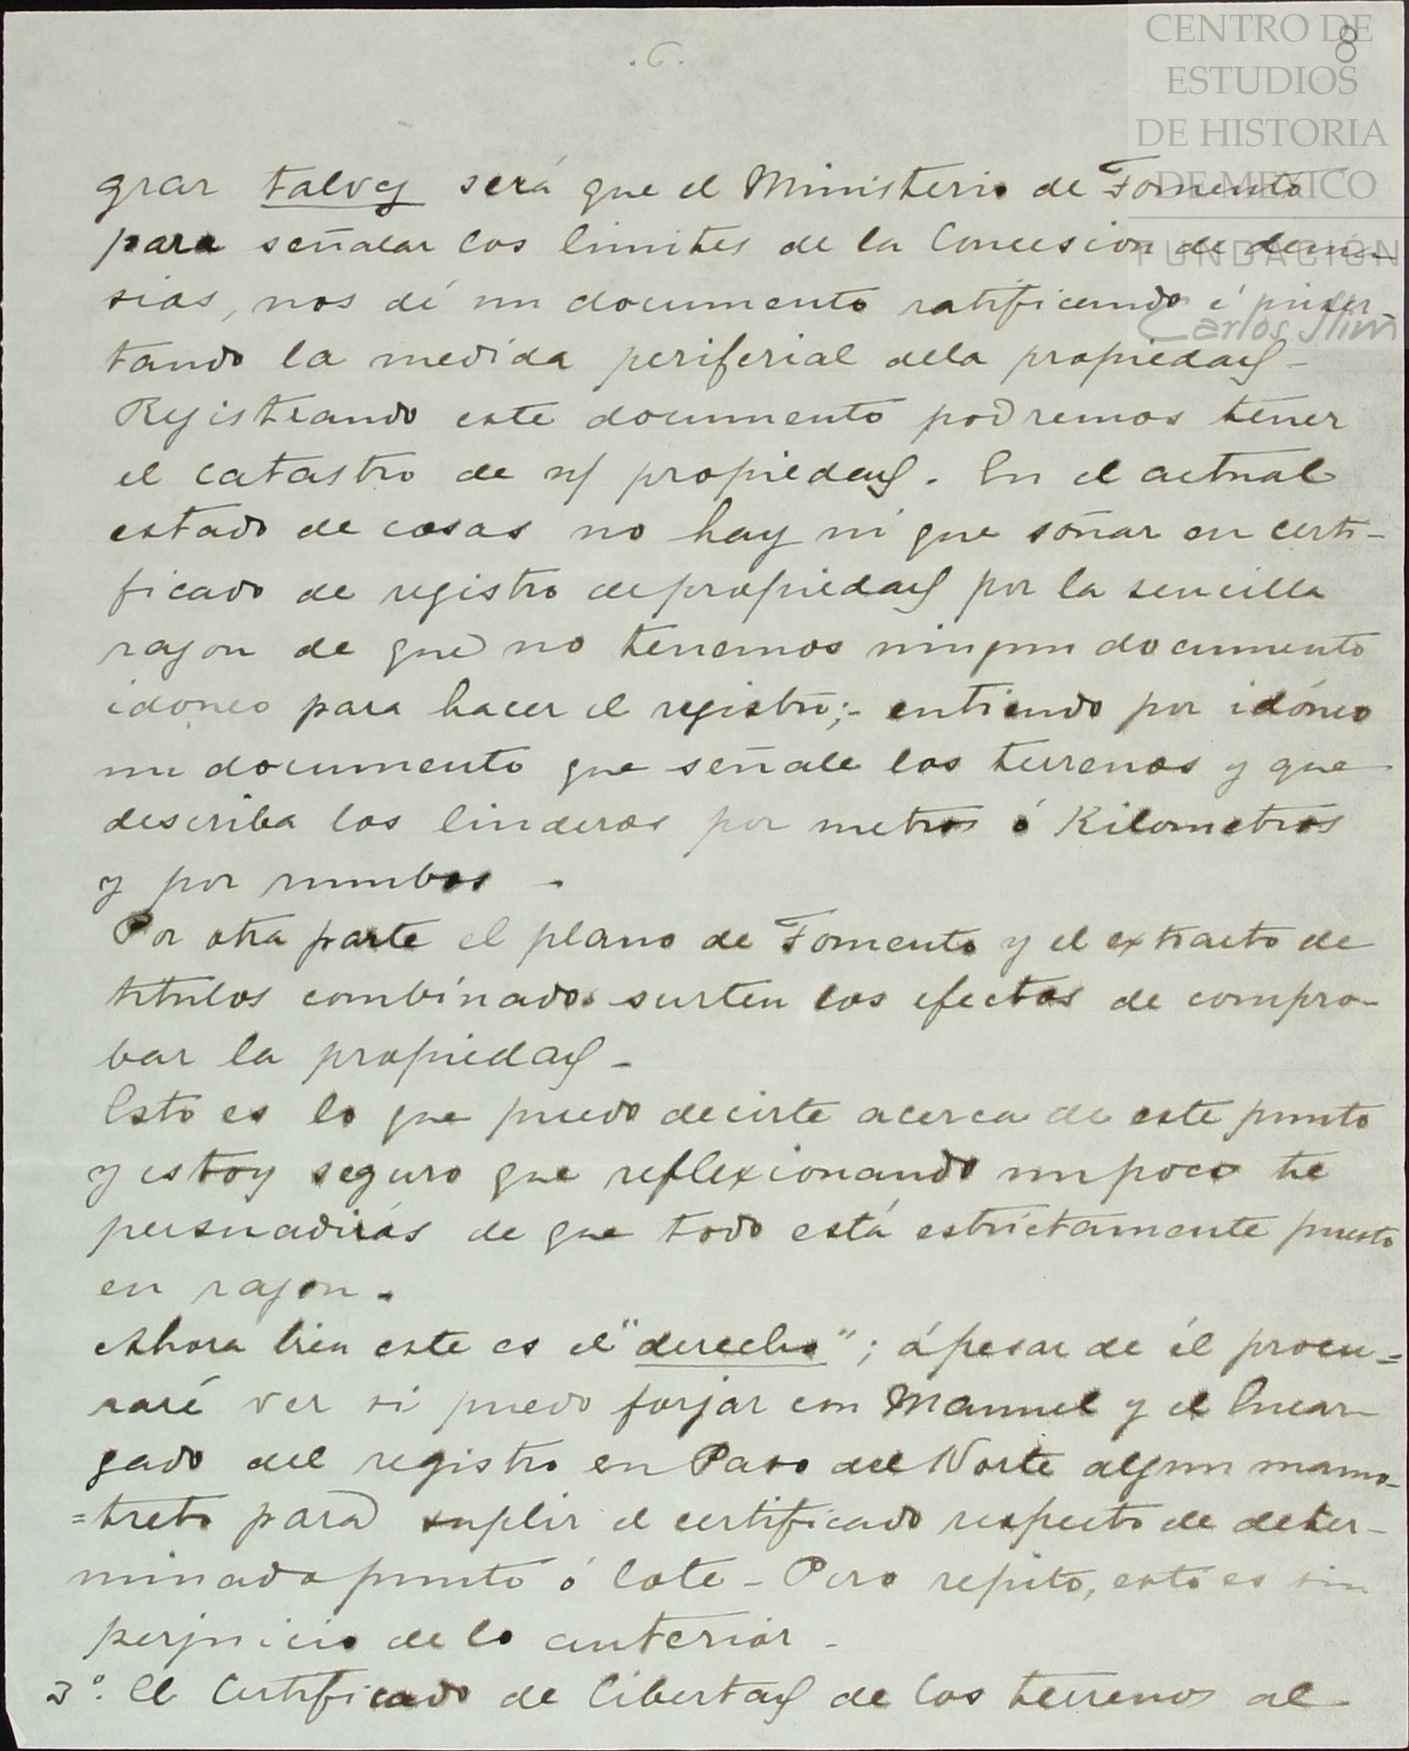 .6.
8
CENTRO DE
ESTUDIOS
DE HISTORIA
DE MÉXICO
FUNDACIÓN
Carlos Slim
grar talvez será que el Ministerio de Fomento
para señalar los limites de la Concesion de dema-
sias, nos dé un documento ratificando é inser-
tando la medida periferial dela propiedad -
Registrando este documento podremos tener
el catastro de n/ propiedad. En el actual
estado de cosas no hay ni que soñar en certi-
ficado de registro depropiedad por la sencilla
razon de que no tenemos ningun documento
idoneo para hacer el registro;- entiendo por idóneo
un documento que señale los terrenos y que
describa los linderos por metros ó Kilometros
y por rumbos -
Por otra parte el plano de Fomento y el extracto de
titulos combinados surten los efectos de compro-
bar la propiedad -
Esto es lo que puedo decirte acerca de este punto
y estoy seguro que reflexionando unpoco te
persuadirás de que todo está estrictamente puesto
en razon.
Ahora bien este es el "derecho"; ápesar de él procu=
raré ver si puedo forjar con Manuel y el Encar-
gado del registro en Paso del Norte algun mamo-
=treto para suplir el certificado respecto de deter-
minado punto ó lote - Pero repito, esto es sin
perjuicio de lo anterior -
3º. El Certificado de libertad de los terrenos al